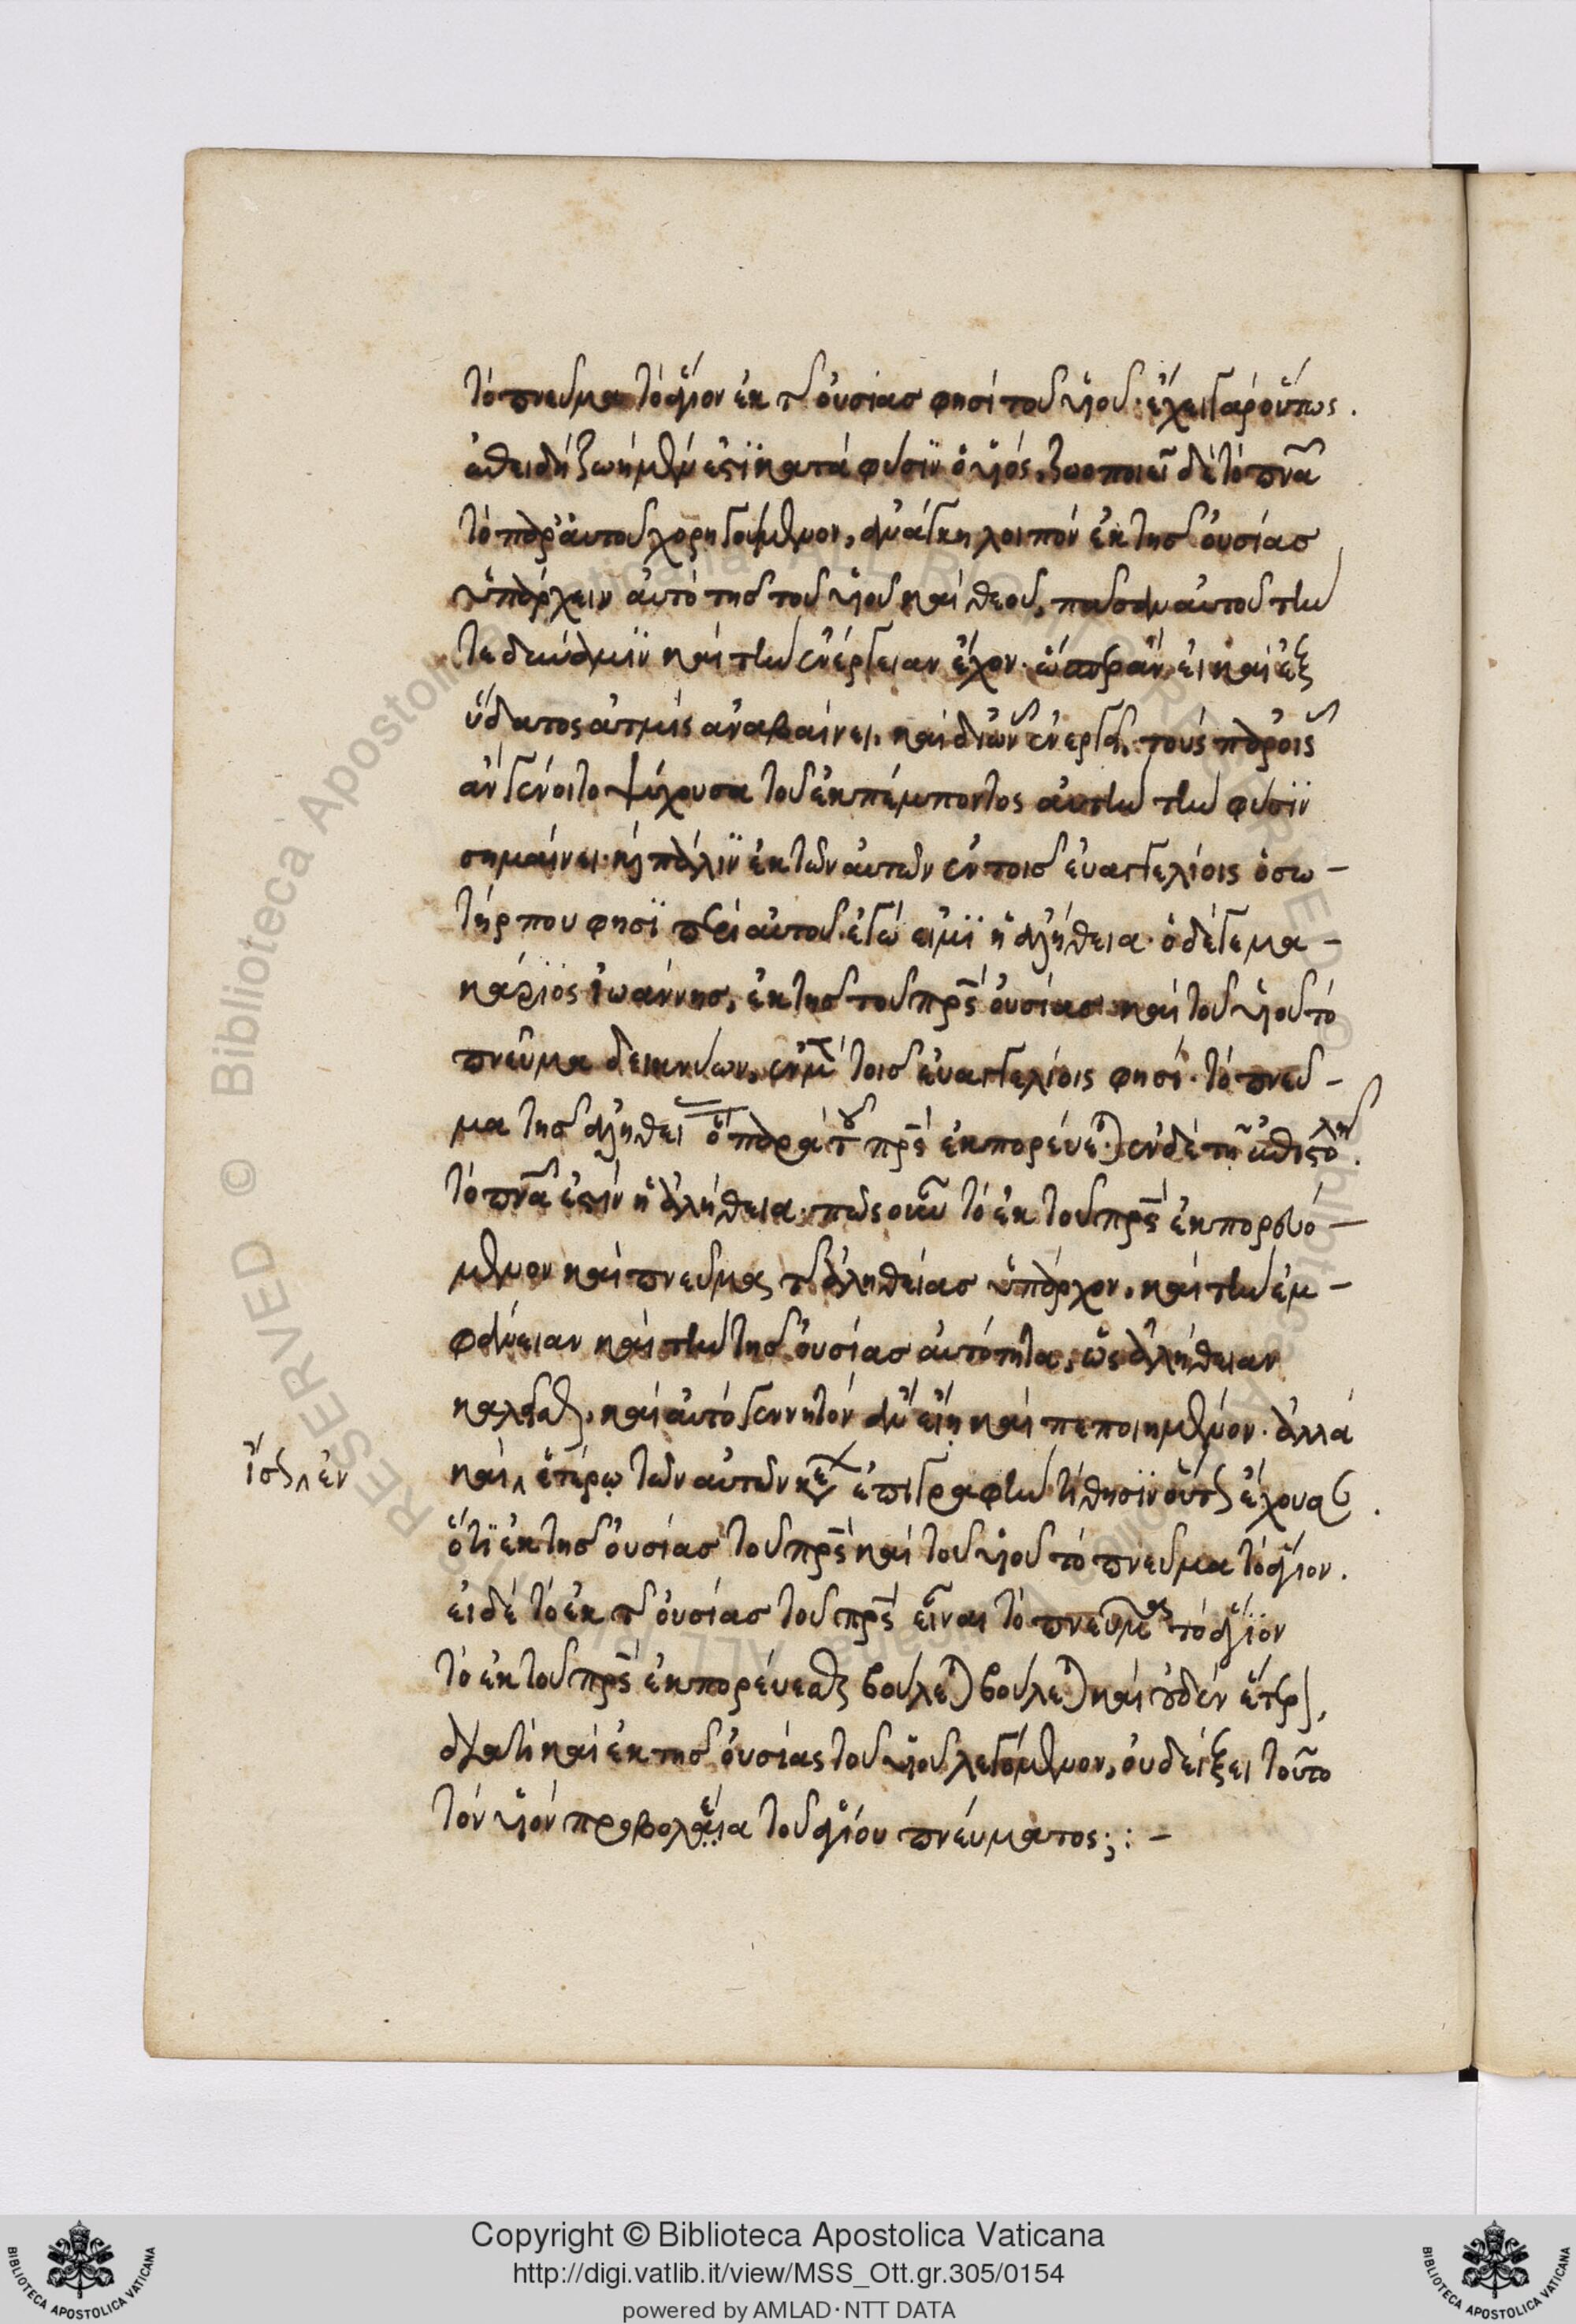 τὸ πνεῦμα τὸ ἅγιον ἐκ τῆς οὐσίας φησὶ τοῦ υἱοῦ· ἔχει γὰρ οὕτως.
ἐπειδὴ ζωὴ μέν ἐστὶ κατὰ φύσιν ὁ υἱός, ζωοποιεῖ δὲ τὸ πνα
τὸ παρ' αὐτοῦ χορηγούμενον, ἀνάγκη λοιπὸν ἐκ τῆς οὐσίας
ὑπάρχειν αὐτὸ τῆς τοῦ υἱοῦ καὶ θεοῦ, πᾶσαν αὐτοῦ τὴν
τε δύναμιν καὶ τὴν ἐνέργειαν ἔχον· ὥσπερ ἂν εἰ καὶ ἐξ
ὕδατος ἀτμὶς ἀναβαίνει, καὶ δι' ὧν ἐνεργεῖ, τοὺς παρ' οἷς
ἂν γένοιτο ψύχουσα τοῦ ἐκπέμποντος αὐτὴν τὴν φύσιν
σημαίνει· καὶ πάλιν ἐκ τῶν αὐτῶν ἐν τοῖς εὐαγγελίοις ὁ σω-
τήρ που φησὶ περὶ αὐτοῦ· ἐγώ εἰμι ἡ ἀλήθεια· ὁ δέ γε μα-
κάριος ἰωάννης, ἐκ τῆς τοῦ πρς οὐσίας καὶ τοῦ υἱοῦ τὸ
πνεῦμα δεικνύων, ἐν μὲν τοῖς εὐαγγελίοις φησί· τὸ πνεῦ-
μα τῆς ἀληθείας ὃ παρὰ τοῦ πρς ἐκπορεύεται· ἐν δὲ τῇ ἐπιστολῇ.
τὸ πνα ἐστὶν ἡ ἀλήθεια· πῶς οὖν τὸ ἐκ τοῦ πρς ἐκπορευό-
μενον καὶ πνεῦμα τῆς ἀληθείας ὑπάρχον, καὶ τὴν ἐμ-
φάνειαν καὶ τὴν τῆς οὐσίας αὐτότητα, ὡς ἀλήθειαν
καλεῖσθαι, καὶ αὐτὸ γεννητὸν ἂν εἴη καὶ πεποιημένον· ἀλλὰ
καὶ ἑτέρῳ τῶν αὐτῶν κε ἐπιγραφὴν τίθησιν οὕτως ἔχουσαν.
ὅτι ἐκ τῆς οὐσίας τοῦ πρς καὶ τοῦ υἱοῦ τὸ πνεῦμα τὸ ἅγιον.
εἰ δὲ τὸ ἐκ τῆς οὐσίας τοῦ πρς εἶναι τὸ πνεῦμα τὸ ἅγιον
τὸ ἐκ τοῦ πρς ἐκπορεύεσθαι βούλεται βούλεται καὶ οὐδὲν ἕτερον,
διατί καὶ ἐκ τῆς οὐσίας τοῦ υἱοῦ λεγόμενον, οὐ δείξει τοῦτο
τὸν υἱὸν προβολέα τοῦ ἁγίου πνεύματος; :-
ἐν
Copyright © Biblioteca Apostolica Vaticana
http://digi.vatlib.it/view/MSS_Ott.gr.305/0154
powered by AMLAD · NTT DATA
BIBLIOTECA APOSTOLICA VATICANA
BIBLIOTECA APOSTOLICA VATICANA